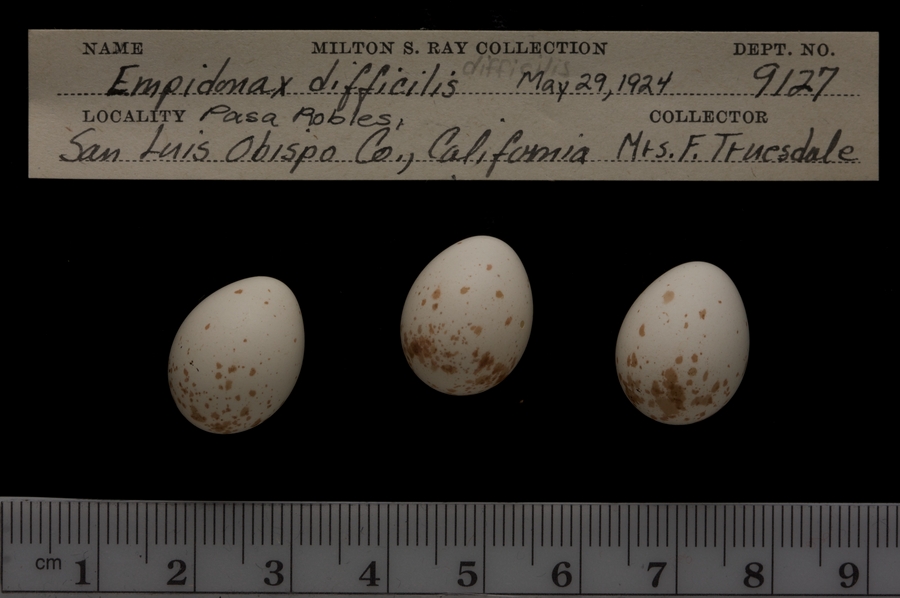 NAME MILTON S. RAY COLLECTION DEPT. NO.
difficilis
Empidonax difficilis May 29, 1924 9127
LOCALITY Pasa Robles, COLLECTOR
San Luis Obispo Co., California Mrs. F. Truesdale
cm 1 2 3 4 5 6 7 8 9